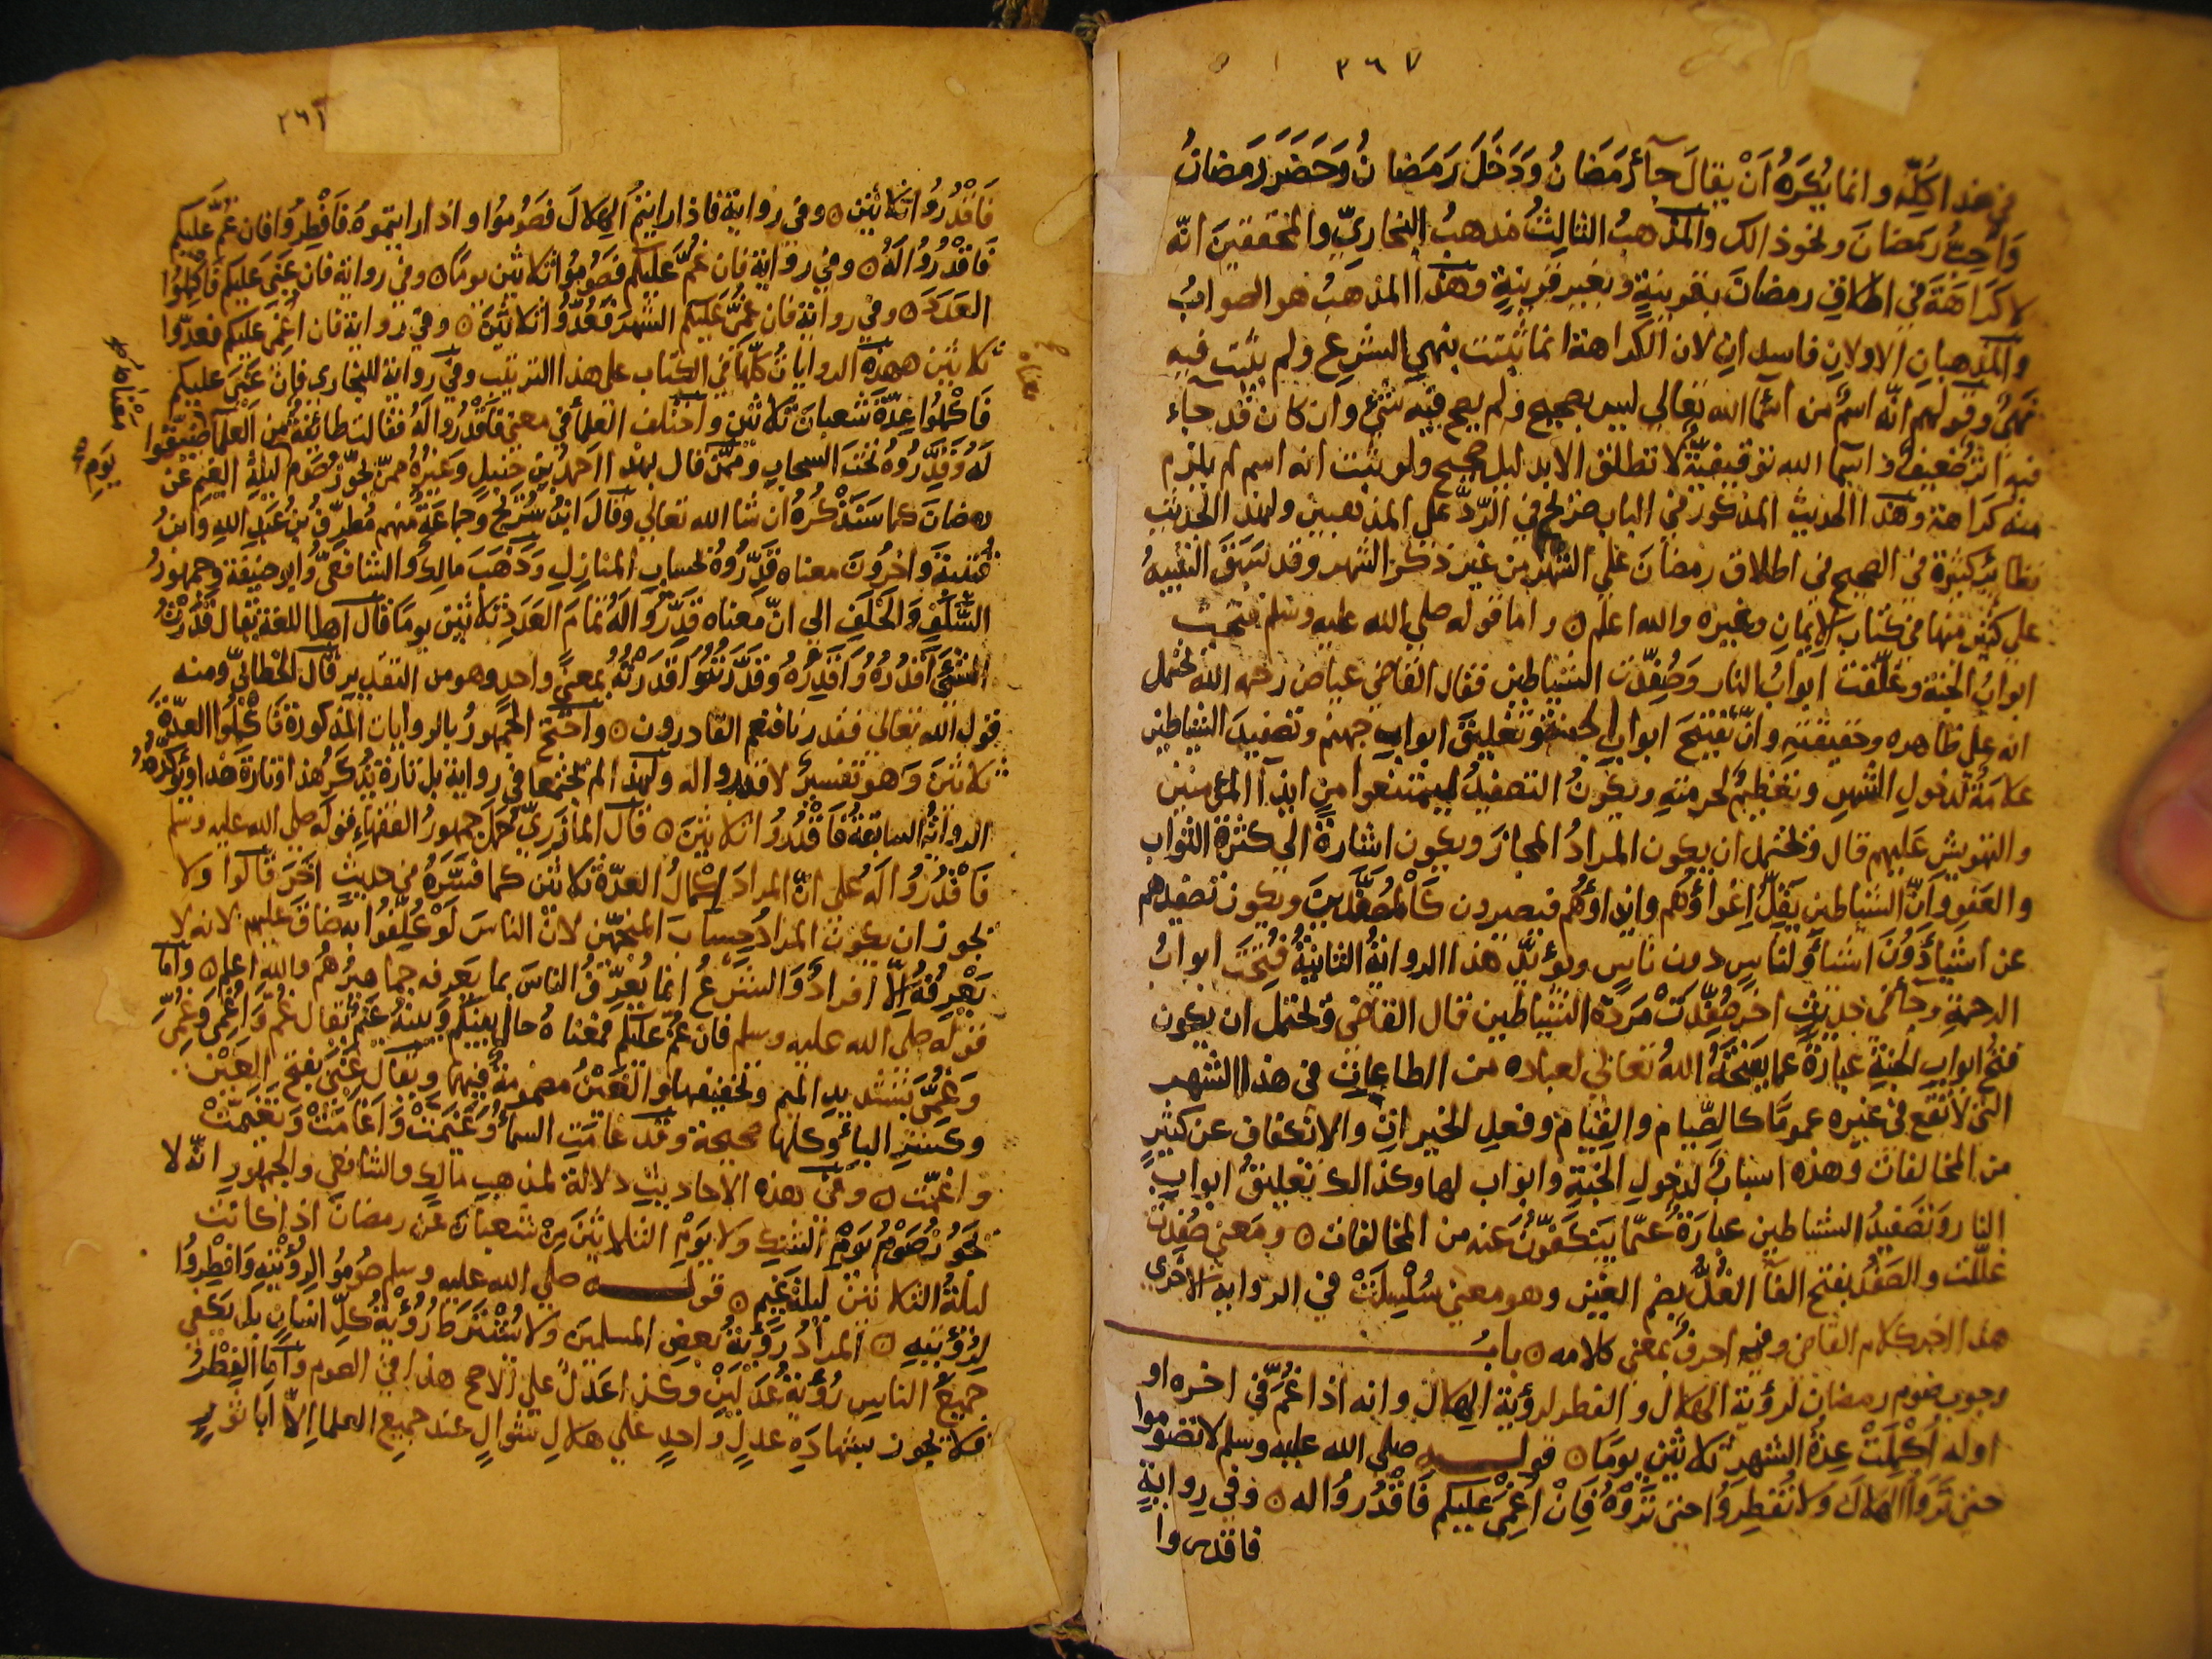 ٣٦٧
في هذا كله وانما يكره ان يقال جآء رمضان ودخل رمضان وحضر رمضان
واحب رمضان ونحو ذالك والمذهب الثالث مذهب البخاري والمحققين انه
لا كراهة في اطلاق رمضان بقرينة وبغير قرينة وهذا المذهب هو الصواب
والمذهبان الاولان فاسدان لان الكراهة انما تثبت بنهي الشرع ولم يثبت فيه
نهي وقولهم انه اسم من اسما الله تعالي ليس بصحيح ولم يصح فيه شئ وان كان قد جآء
فيه اثر ضعيف واسما الله توقيفية لا تطلق الا بدليل صحيح ولو ثبت انه اسم لم يلزم
منه كراهة وهذا الحديث المذكور في الباب صريح في الرد علي المذهبين ولهذا الحديث
نظائر كثيرة في الصحيح في اطلاق رمضان علي الشهر من غير ذكر الشهر وقد سبق التنبيه
علي كثير منها في كتاب الايمان وغيره والله اعلم ٥ واما قوله صلي الله عليه وسلم فتحت
ابواب الجنة وغلقت ابواب النار وصفدت الشياطين فقال القاضي عياض رحمه الله يحتمل
انه علي ظاهره وحقيقته وان تفتيح ابواب الجنة وتغليق ابواب جهنم وتصفيد الشياطين
علامة لدخول الشهر وتعظيم لحرمته ويكون التصفيد ليمتنعوا من ايذآ المؤمنين
والتهويش عليهم قال ويحتمل ان يكون المراد المجاز ويكون اشارة الي كثرة الثواب
والعفو وان الشياطين يقل اغواؤهم وايذاؤهم فيصيرون كالمصفدين ويكون تصفيدهم
عن اشياء دون اشياء ولناس دون ناس ويؤيد هذا الرواية الثانية فتحت ابواب
الرحمة وجآء في حديث اخر صفدت مردة الشياطين قال القاضي ويحتمل ان يكون
فتح ابواب الجنة عبارة عما يفتحه الله تعالي لعباده من الطاعات في هذا الشهر
التي لا تقع في غيره عموما كالصيام والقيام وفعل الخيرات والانكفاف عن كثير
من المخالفات وهذه اسباب لدخول الجنة وابواب لها وكذالك تغليق ابواب
النار وتصفيد الشياطين عبارة عما ينكفون عنه من المخالفات ٥ ومعني صفدت
غللت والصفد بفتح الفآ الغل بضم الغين وهو معني سلسلت في الرواية الاخري
هذا اخر كلام القاضي وفيه احرف بمعني كلامه ٥ باب
وجوب صوم رمضان لرؤية الهلال والفطر لرؤية الهلال وانه اذا غم في اخره او
اوله اكملت عدة الشهر ثلاثين يوما ٥ قوله صلي الله عليه وسلم لا تصوموا
حتي تروا الهلال ولا تفطروا حتي تروه فان اغمي عليكم فاقدروا له ٥ وفي رواية
فاقدروا
فاقدروا ثلاثين ٥ وفي رواية فاذا رايتم الهلال فصوموا واذا رايتموه فافطروا فان غم عليكم
فاقدروا له ٥ وفي رواية فان غم عليكم فصوموا ثلاثين يوما ٥ وفي رواية فان غمي عليكم فاكملوا
العدد ٥ وفي رواية فان غمي عليكم الشهر فعدوا ثلاثين ٥ وفي رواية فان اغمي عليكم فعدوا
ثلاثين هذه الروايات كلها في الكتاب علي هذا الترتيب وفي رواية للبخاري فان غبي عليكم
فاكملوا عدة شعبان ثلاثين واختلف العلمآ في معني فاقدروا له فقالت طائفة من العلمآ ضيقوا
له وقدروه تحت السحاب وممن قال بهذا احمد بن حنبل وغيره ممن يجوز صوم ليلة الغيم عن
يوم
رمضان كما سنذكره ان شا الله تعالي وقال ابن سريج وجماعة منهم مطرف بن عبد الله وابن
قتيبة واخرون معناه قدروه بحساب المنازل وذهب مالك والشافعي وابو حنيفة وجمهور
السلف والخلف الي ان معناه قدروا له تمام العدد ثلاثين يوما قال اهل اللغة يقال قدرت
الشئ اقدره واقدره وقدرته واقدرته بمعني واحد وهو من التقدير قال الخطابي ومنه
قول الله تعالي فقدرنا فنعم القادرون ٥ واحتج الجمهور بالروايات المذكورة فاكملوا العدة
ثلاثين وهو تفسير لاقدروا له ولهذا لم يجتمعا في رواية بل تارة يذكر هذا وتارة هذا ويؤكده
الرواية السابقة فاقدروا ثلاثين ٥ قال المازري حمل جمهور الفقهاء قوله صلي الله عليه وسلم
فاقدروا له علي ان المراد اكمال العدة ثلاثين كما فسره في حديث اخر قالوا ولا
يجوز ان يكون المراد حساب المنجمين لان الناس لو كلفوا به ضاق عليهم لانه لا
يعرفه الا افراد والشرع انما يعرف الناس بما يعرفه جماهيرهم والله اعلم ٥ واما
قوله صلي الله عليه وسلم فان غم عليكم فمعناه حال بينكم وبينه غيم يقال غم واغمي وغمي
وغمي بتشديد الميم وتخفيفها والغين مضمومة فيهما ويقال غبي بفتح الغين
وكسر البآء وكلها صحيحة وقد غامت السمآء وغيمت واغامت وتغيمت
واغمت ٥ وفي هذه الاحاديث دلالة لمذهب مالك والشافعي والجمهور انه لا
يجوز صوم يوم الشك ولا يوم الثلاثين من شعبان عن رمضان اذا كانت
ليلة الثلاثين ليلة غيم ٥ قوله صلي الله عليه وسلم صوموا لرؤيته وافطروا
لرؤيته ٥ المراد رؤية بعض المسلمين ولا يشترط رؤية كل انسان بل يكفي
جميع الناس رؤية عدلين وكذا عدل علي الاصح هذا في الصوم واما الفطر
فلا يجوز بشهادة عدل واحد علي هلال شوال عند جميع العلما الا ابا ثور